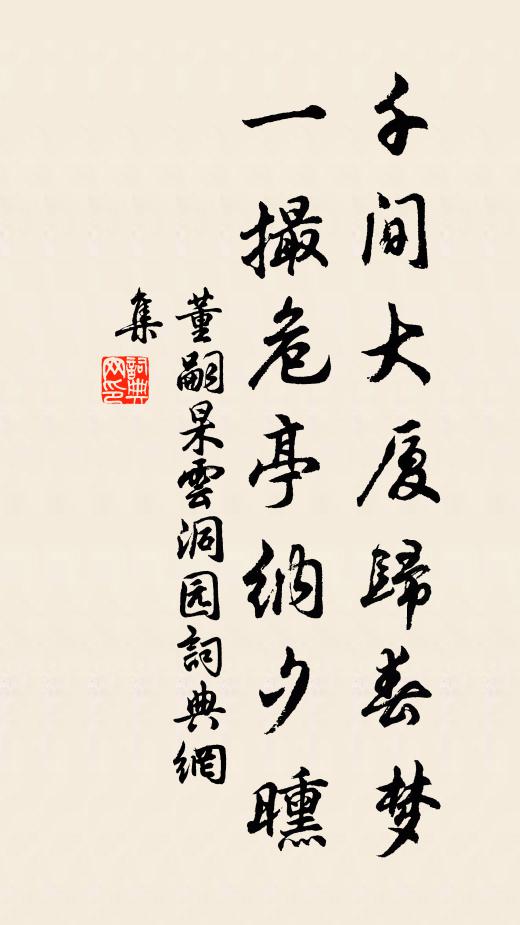 千间大厦歸春梦
一撮危亭纳夕曛
董嗣杲雲洞园詞典網
集
詞典网印